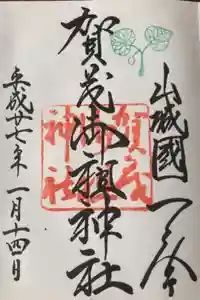 山城國一之宮
賀茂御祖神社
平成廿七年一月十四日
賀茂
神社